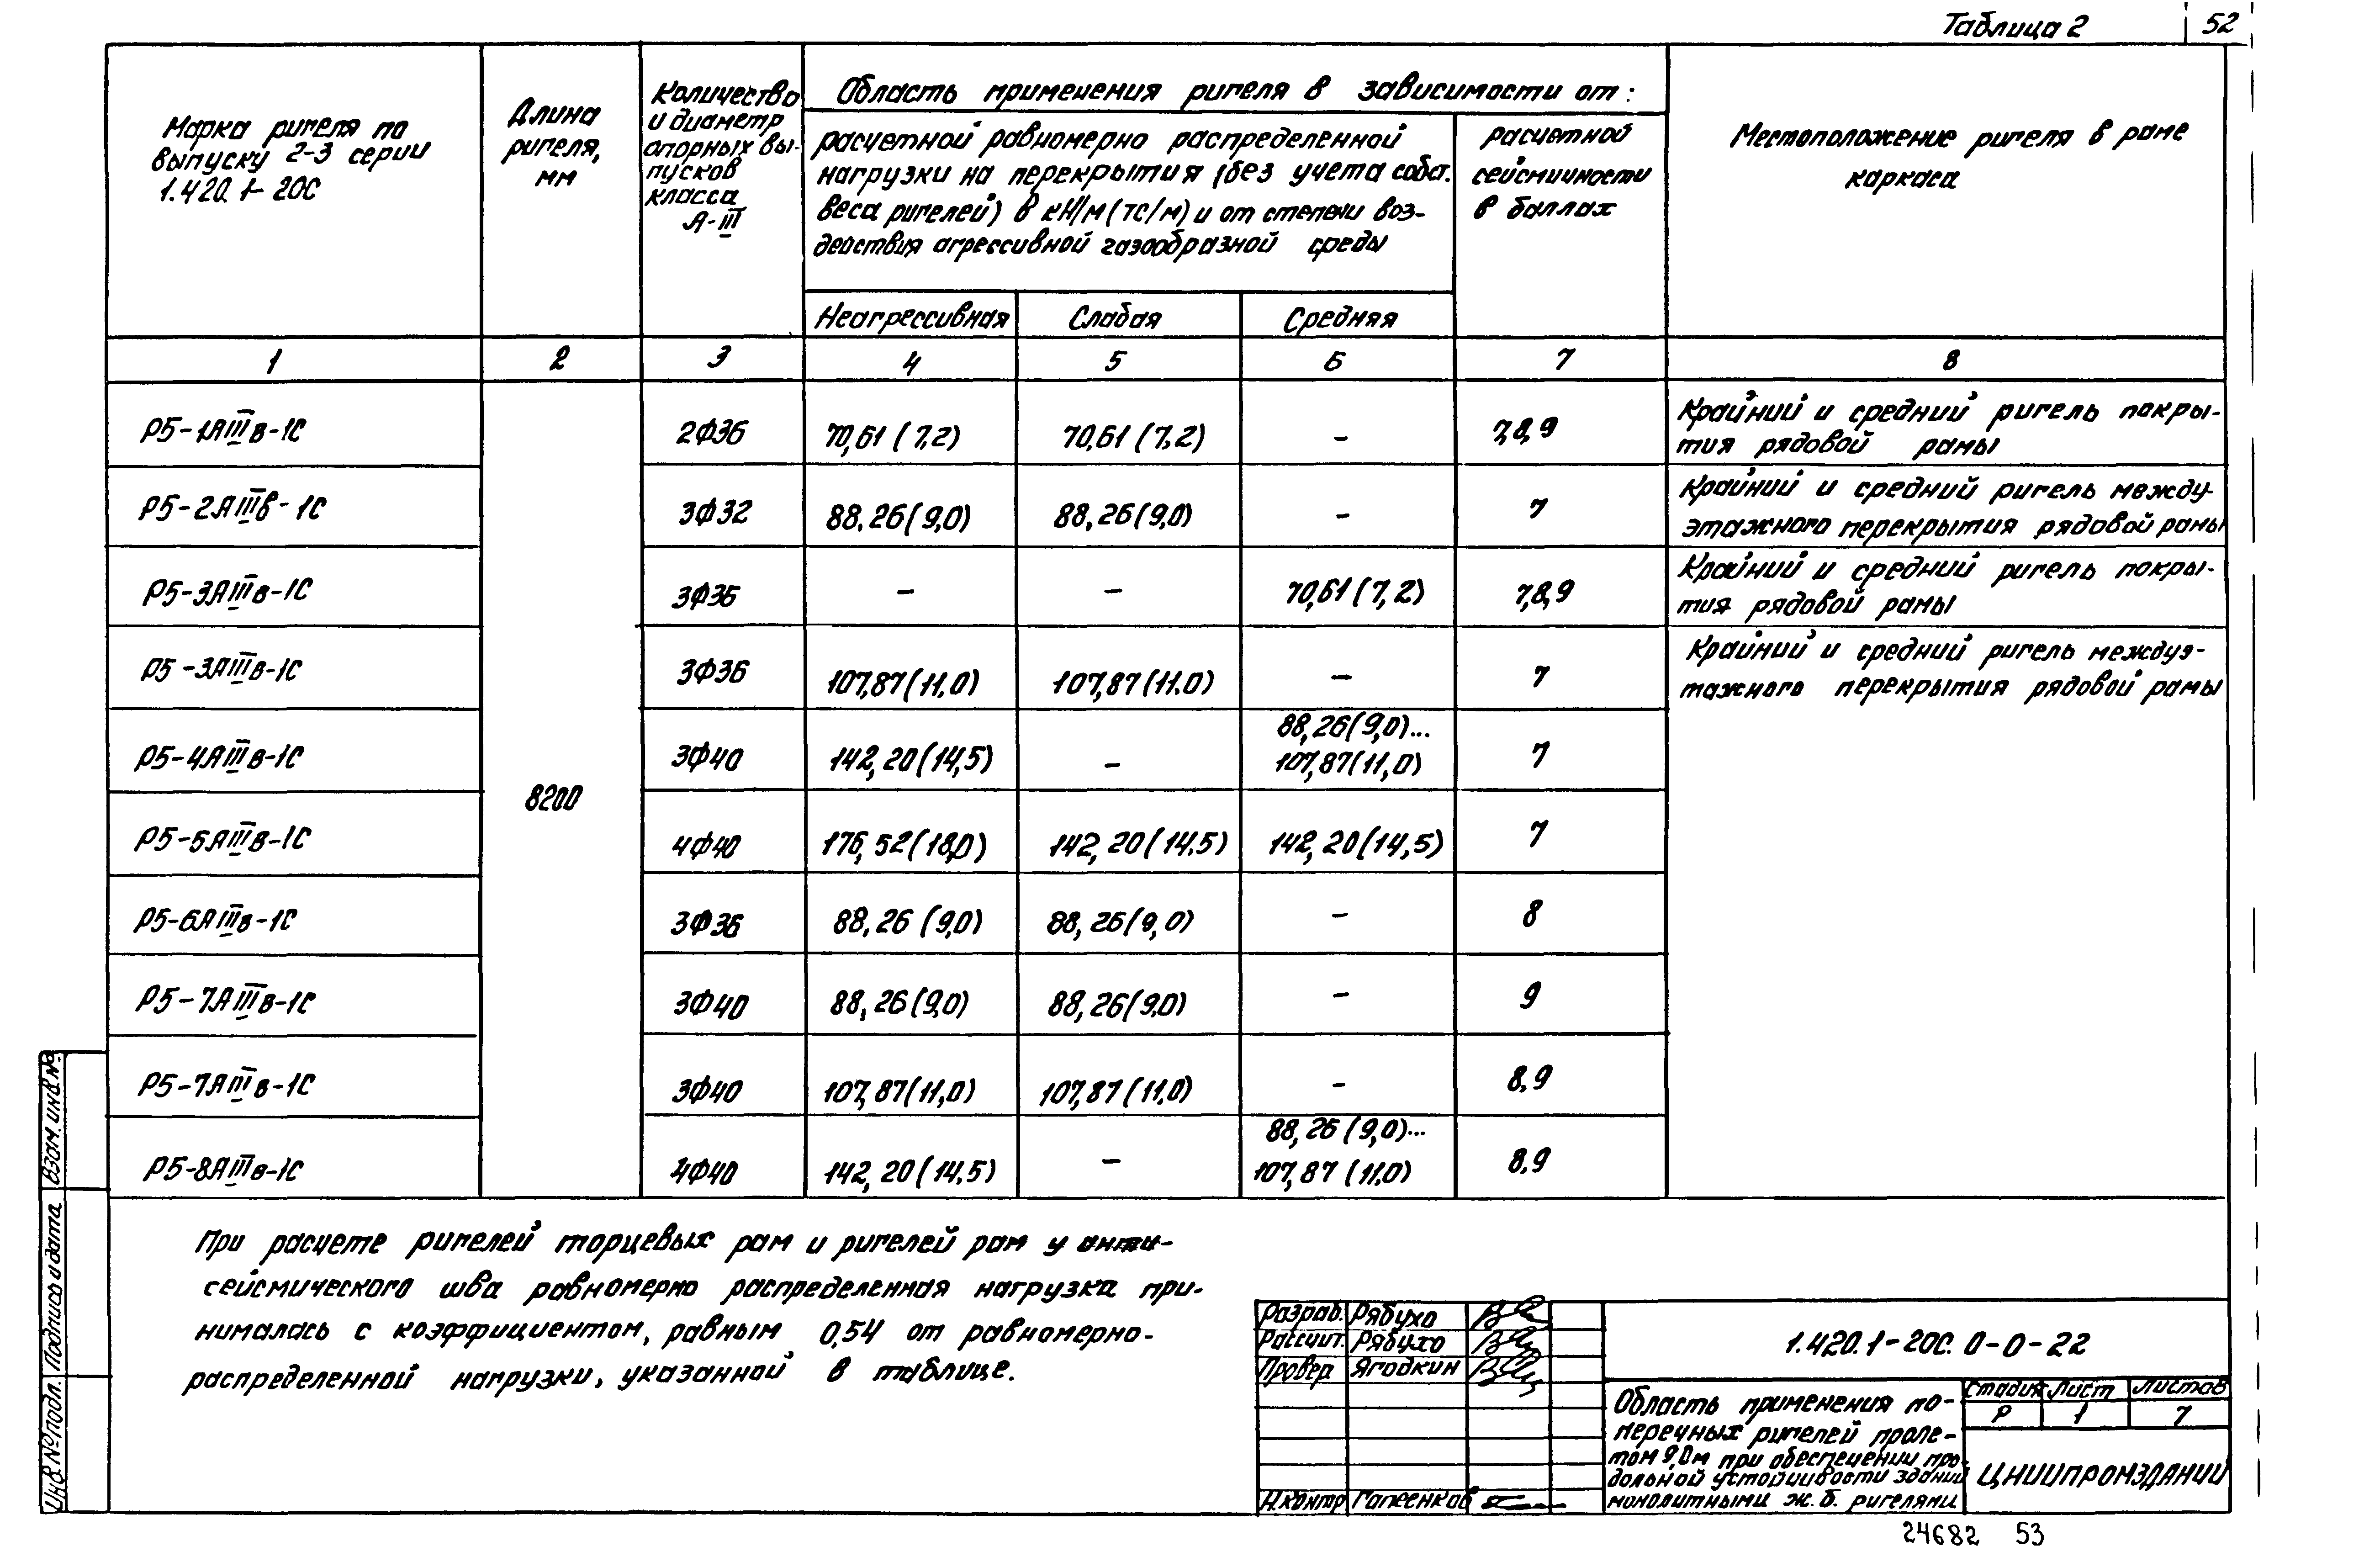 Таблица 2
52
Марка ригеля по
выпуску 2-3 серии
1.420.1-20С
Длина
ригеля,
мм
Количество
и диаметр
опорных вы-
пусков
класса
А-III
Область применения ригеля в зависимости от:
расчетной равномерно распределенной
нагрузки на перекрытия (без учета собст.
веса ригелей) в кН/м (тс/м) и от степени воз-
действия агрессивной газообразной среды
Неагрессивная
Слабая
Средняя
расчетной
сейсмичности
в баллах
Местоположение ригеля в раме
каркаса
1 2 3 4 5 6 7 8
Р5-1АIIIв-1С 2Ф36 70,61 (7,2) 70,61 (7,2) - 7,8,9
Крайний и средний ригель покры-
тия рядовой рамы
Р5-2АIIIв-1С 3Ф32 88,26(9,0) 88,26(9,0) - 7
Крайний и средний ригель между-
этажного перекрытия рядовой рамы
Р5-3АIIIв-1С 3Ф36 - - 70,61 (7,2) 7,8,9
Крайний и средний ригель покры-
тия рядовой рамы
Р5-3АIIIв-1С 3Ф36 107,87(11,0) 107,87(11.0) - 7
Крайний и средний ригель междуэ-
тажного перекрытия рядовой рамы
88,26(9,0)...
Р5-4АIIIв-1С 3Ф40 142,20(14,5) - 107,87(11,0) 7
8200
Р5-5АIIIв-1С 4Ф40 176,52(18,0) 142,20(14.5) 142,20(14,5) 7
Р5-6АIIIв-1С 3Ф36 88,26 (9,0) 88,26(9,0) - 8
Р5-7АIIIв-1С 3Ф40 88,26(9,0) 88,26(9,0) - 9
Р5-7АIIIв-1С 3Ф40 107,87(11,0) 107,87(11.0) - 8,9
88,26 (9,0)...
Р5-8АIIIв-1С 4Ф40 142,20(14.5) - 107,87 (11.0) 8.9
При расчете ригелей торцевых рам и ригелей рам у анти-
сейсмического шва равномерно распределенная нагрузка при-
нималась с коэффициентом, равным 0,54 от равномерно-
распределенной нагрузки, указанной в таблице.
Взам. инв.№
Подпись и дата
Инв.№подл.
Разраб. Рябухо
Рассчит. Рябухо
Провер. Ягодкин
Н.контр
1.420.1-20С. 0-0-22
Область применения по-
перечных ригелей проле-
том 9,0м при обеспечении про-
дольной устойчивости зданий
монолитными ж.б. ригелями
Стадия Лист Листов
Р 1 7
ЦНИИПРОМЗДАНИЙ
24682 53